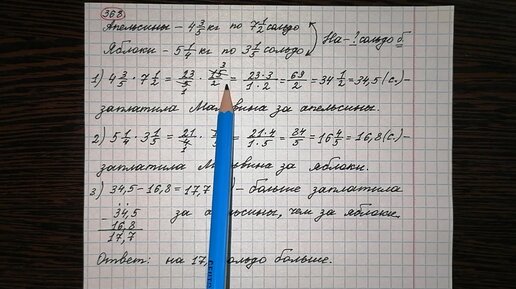 368
Апельсины – 4 3/5 кг по 7 1/2 сольдо
Яблоки – 5 1/4 кг по 3 1/5 сольдо
На – ? сольдо б
1) 4 3/5 · 7 1/2 = 23/5 · 15/2 = 23·3/1·2 = 69/2 = 34 1/2 = 34,5 (с.) –
заплатила за апельсины.
2) 5 1/4 · 3 1/5 = 21/4 · = 21·4/1·5 = 84/5 = 16 4/5 = 16,8 (с.) –
заплатила за яблоки.
3) 34,5 – 16,8 = 17,7 ) – больше заплатила
за апельсины, чем за яблоки.
– 34,5
16,8
17,7
Ответ: на 17, сольдо больше.